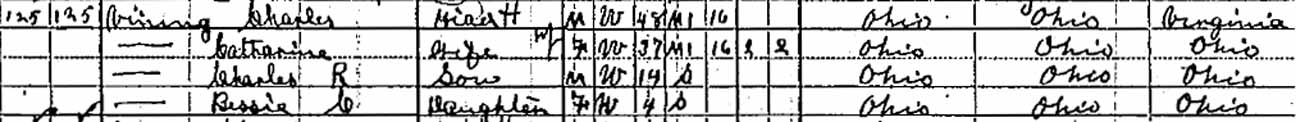 125 125 Vining Charles Head M W 48 M1 16 Ohio Ohio Virginia
— Catharine Wife F W 37 M1 16 2 2 Ohio Ohio Ohio
— Charles R Son M W 14 S Ohio Ohio Ohio
— Bessie C Daughter F W 4 S Ohio Ohio Ohio